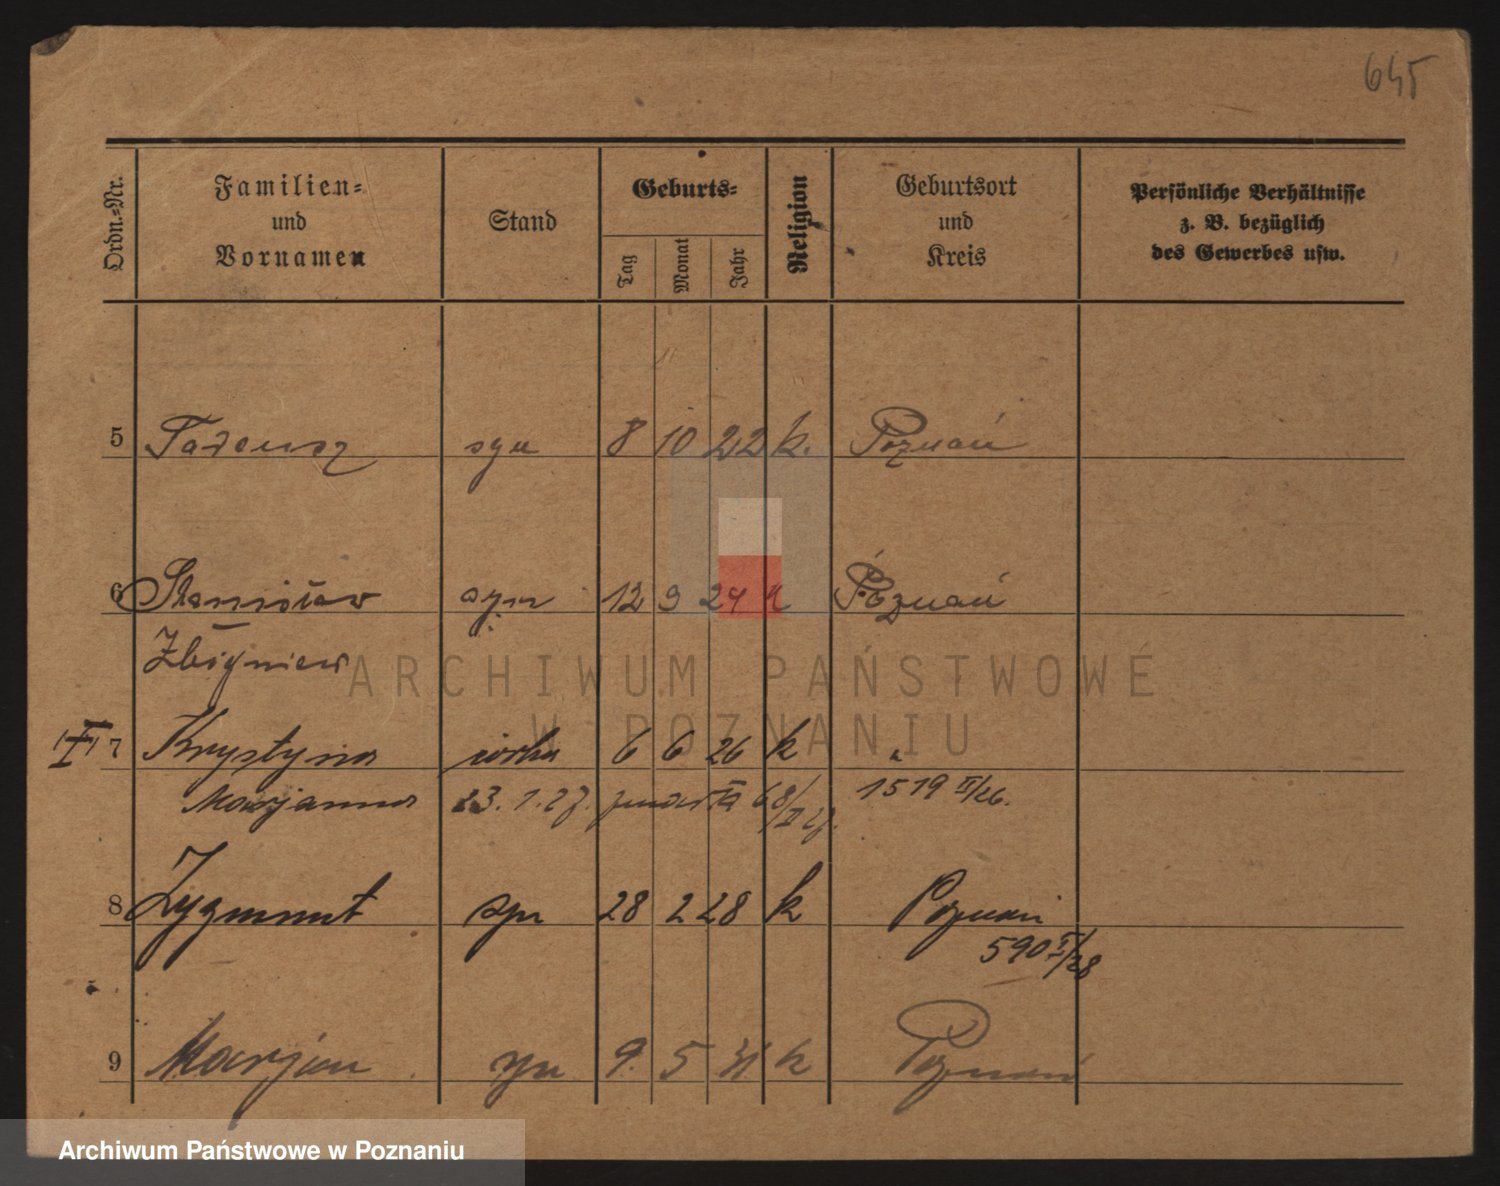 645
Ordn.=Nr.
Familien=
und
Vornamen
Stand
Geburts=
Tag Monat Jahr
Religion
Geburtsort
und
Kreis
Persönliche Verhältnisse
z. B. bezüglich
des Gewerbes usw.
5 Tadeusz syn 8 10 22 k. Poznań
6 Stanisław syn 12 9 24 k Poznań
Zbigniew
ARCHIWUM PAŃSTWOWE
W POZNANIU
7 Krystyna córka 6 6 26 k "
Marjanna 23. 1. 27. zmarła 68/II 27. 1519 II/26.
8 Zygmunt syn 28 2 28 k Poznań
590 I/28
9 Marjan syn 9. 5 31 k Poznań
Archiwum Państwowe w Poznaniu